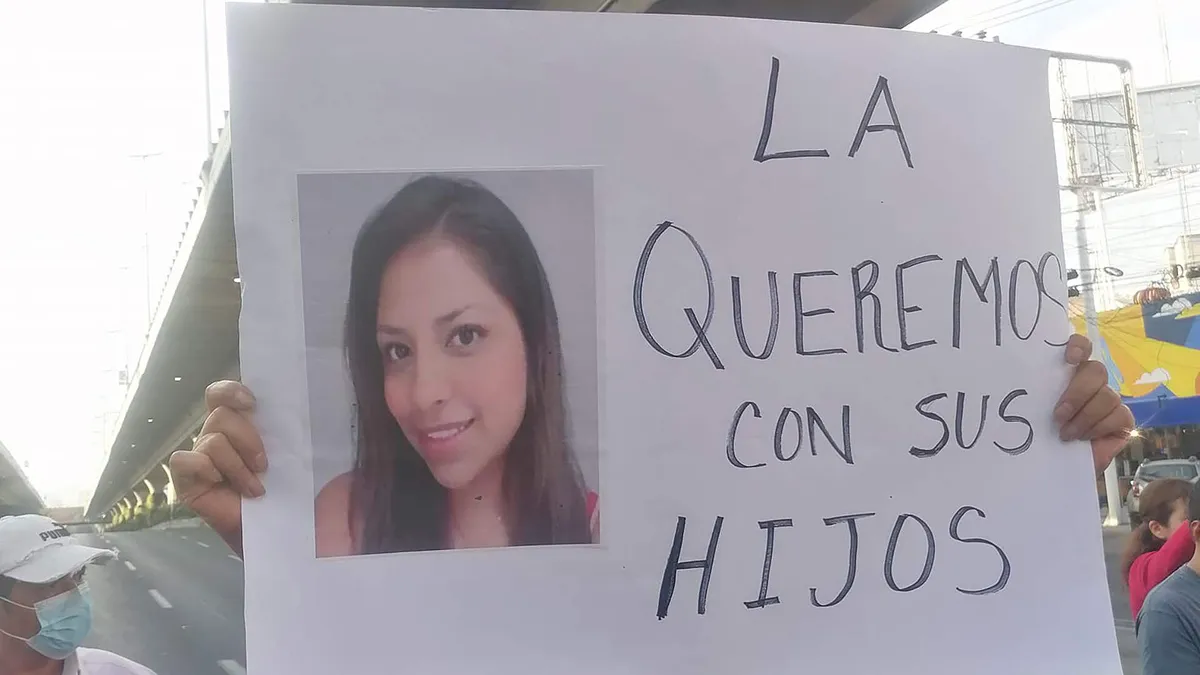 LA
QUEREMOS
CON SUS
HIJOS
PUMA